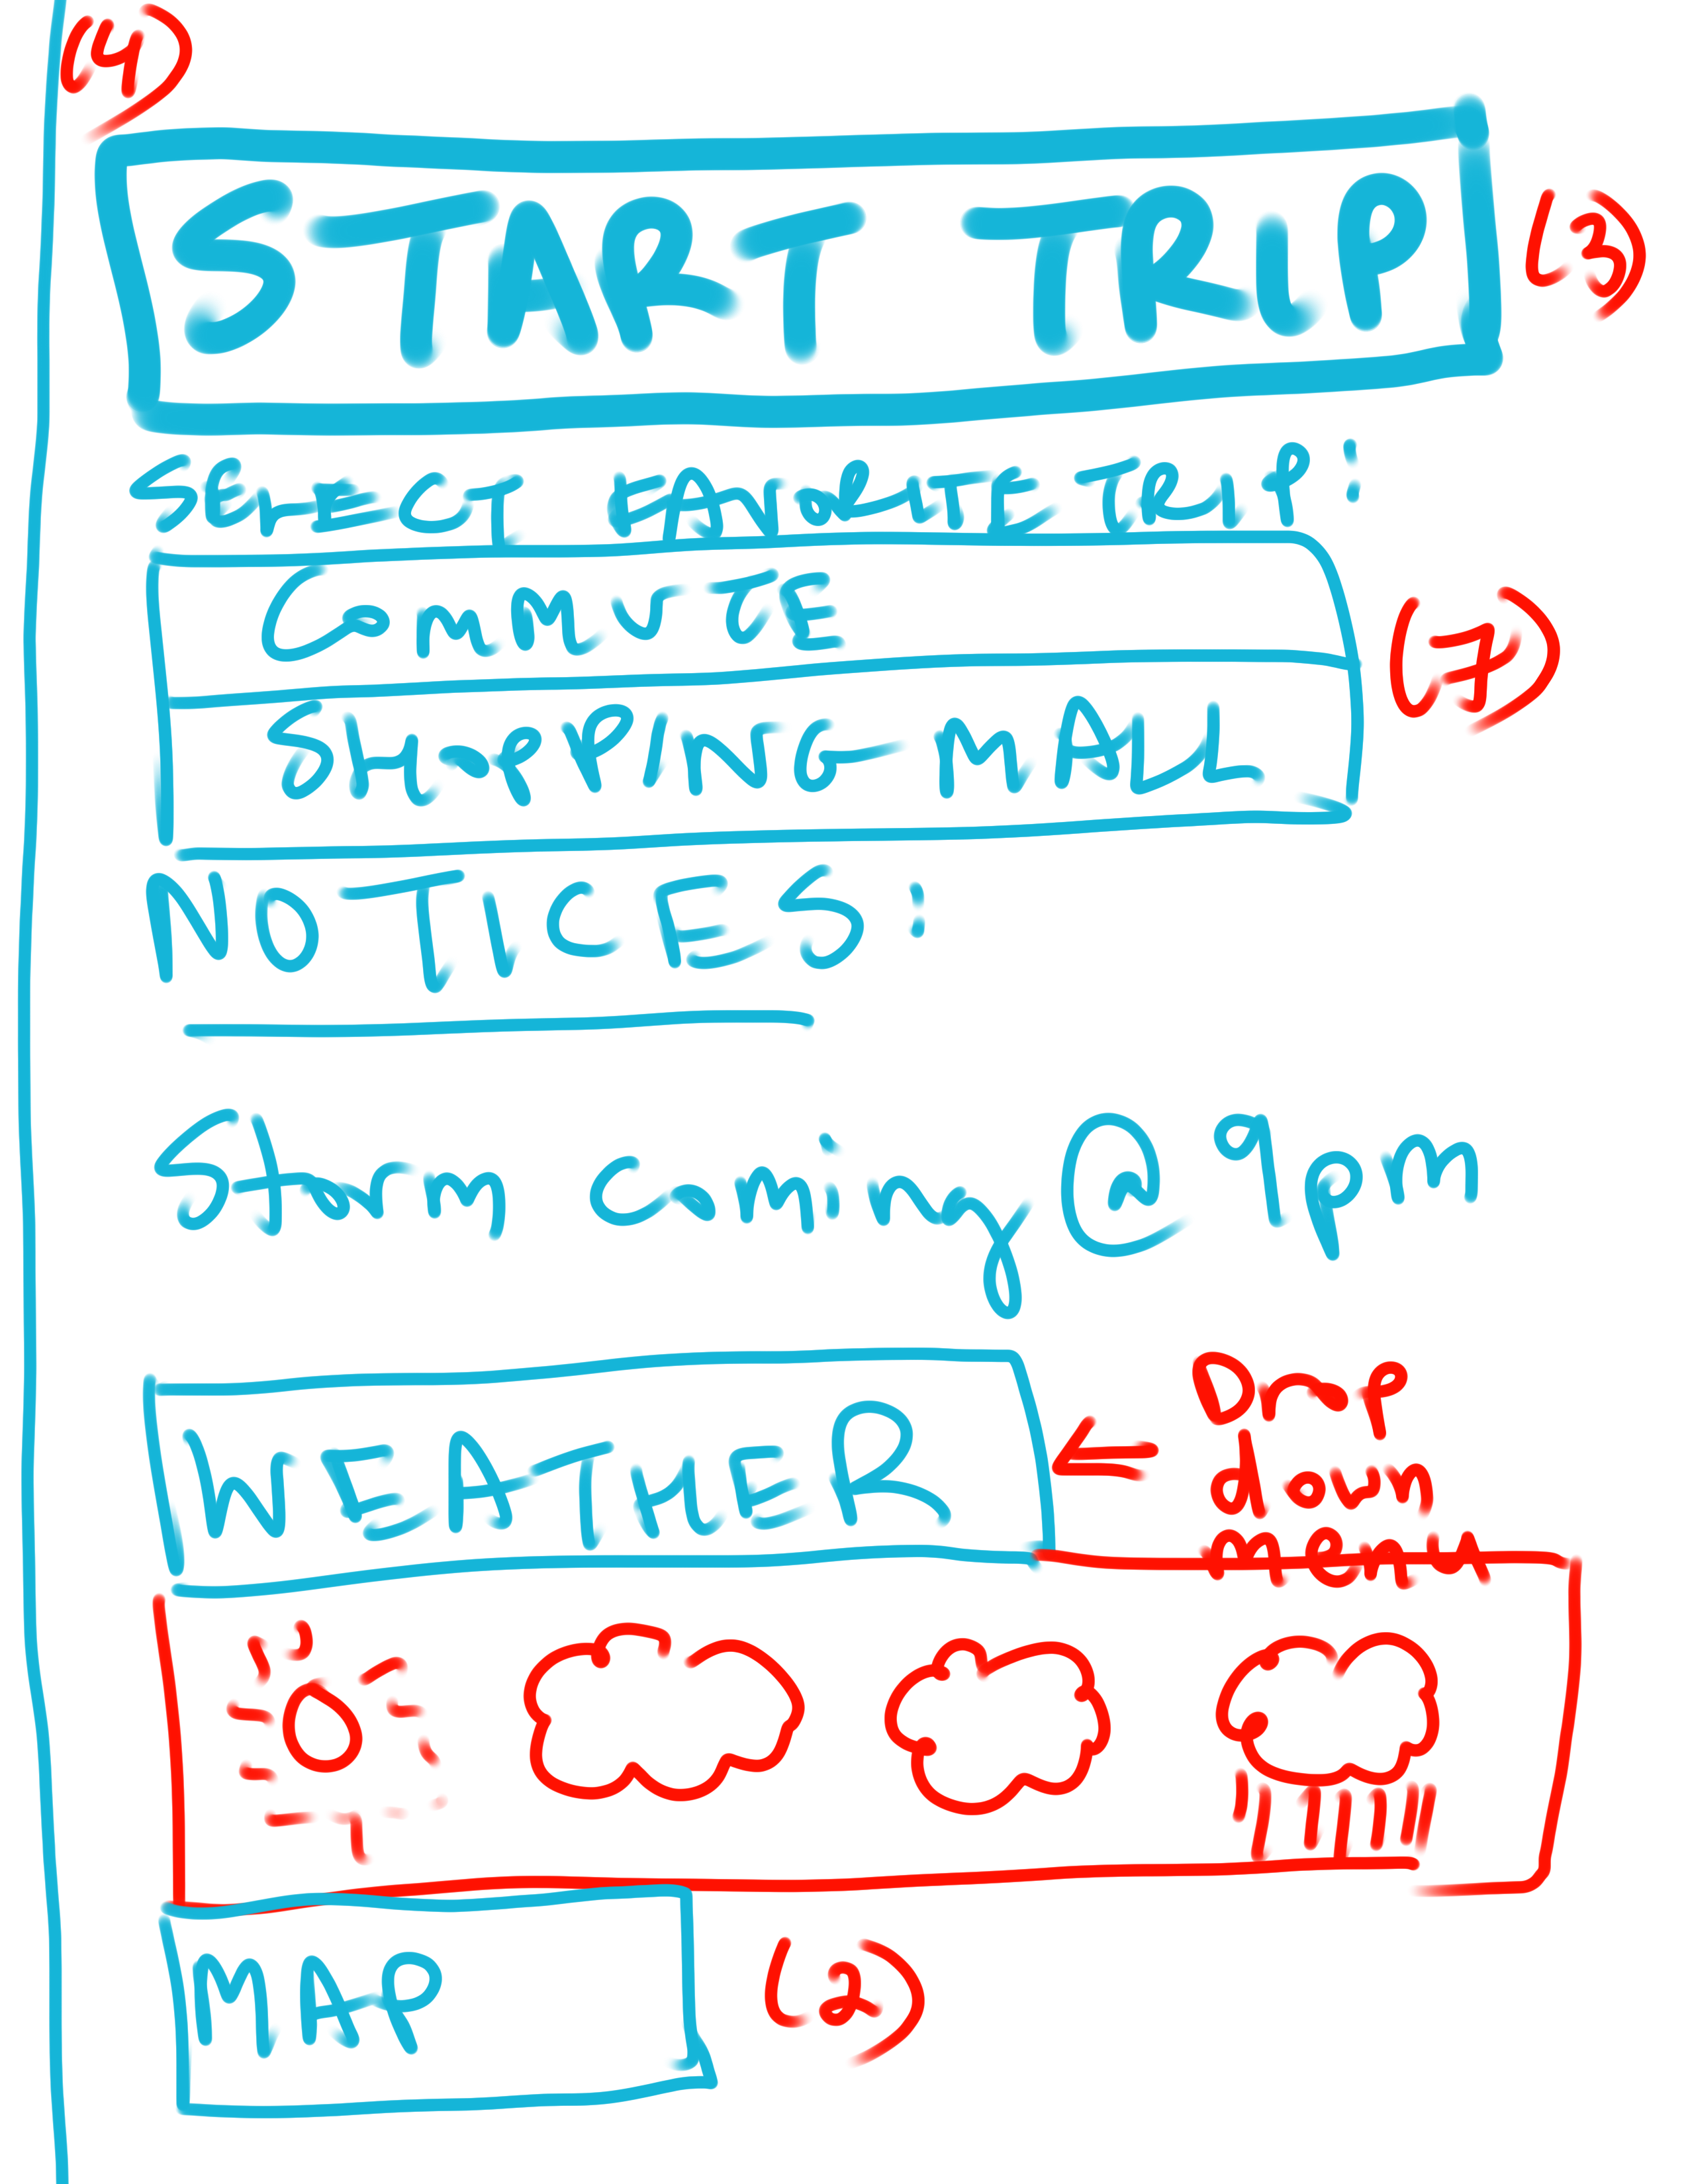 (4)
START TRIP (3)
SELECT FAVORITE TRIP:
COMMUTE
(7)
SHOPPING MALL
NOTICES:
Storm coming @ 9pm
WEATHER
Drop
down
menu
MAP (2)